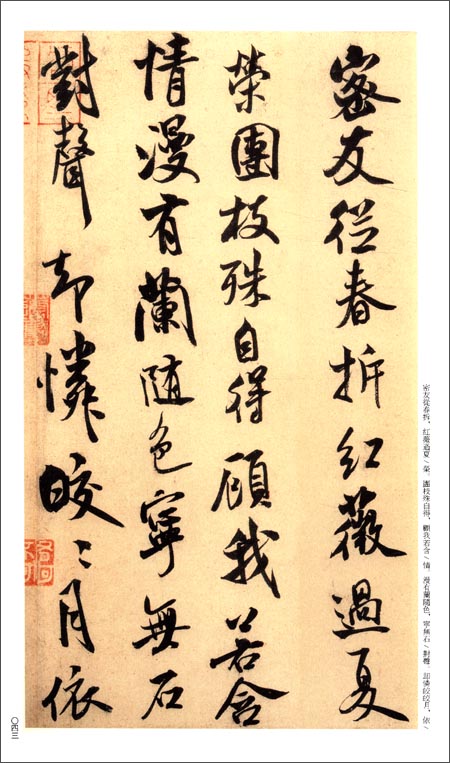 密友從春拆紅薇過夏
榮團枝殊自得顧我若含
情漫有蘭隨色寧無石
對聲却憐皎〻月依
密友從春拆,紅薇過夏/榮。團枝殊自得,顧我若含/情。漫有蘭隨色,寧無石/對聲。却憐皎皎月,依/
〇四三